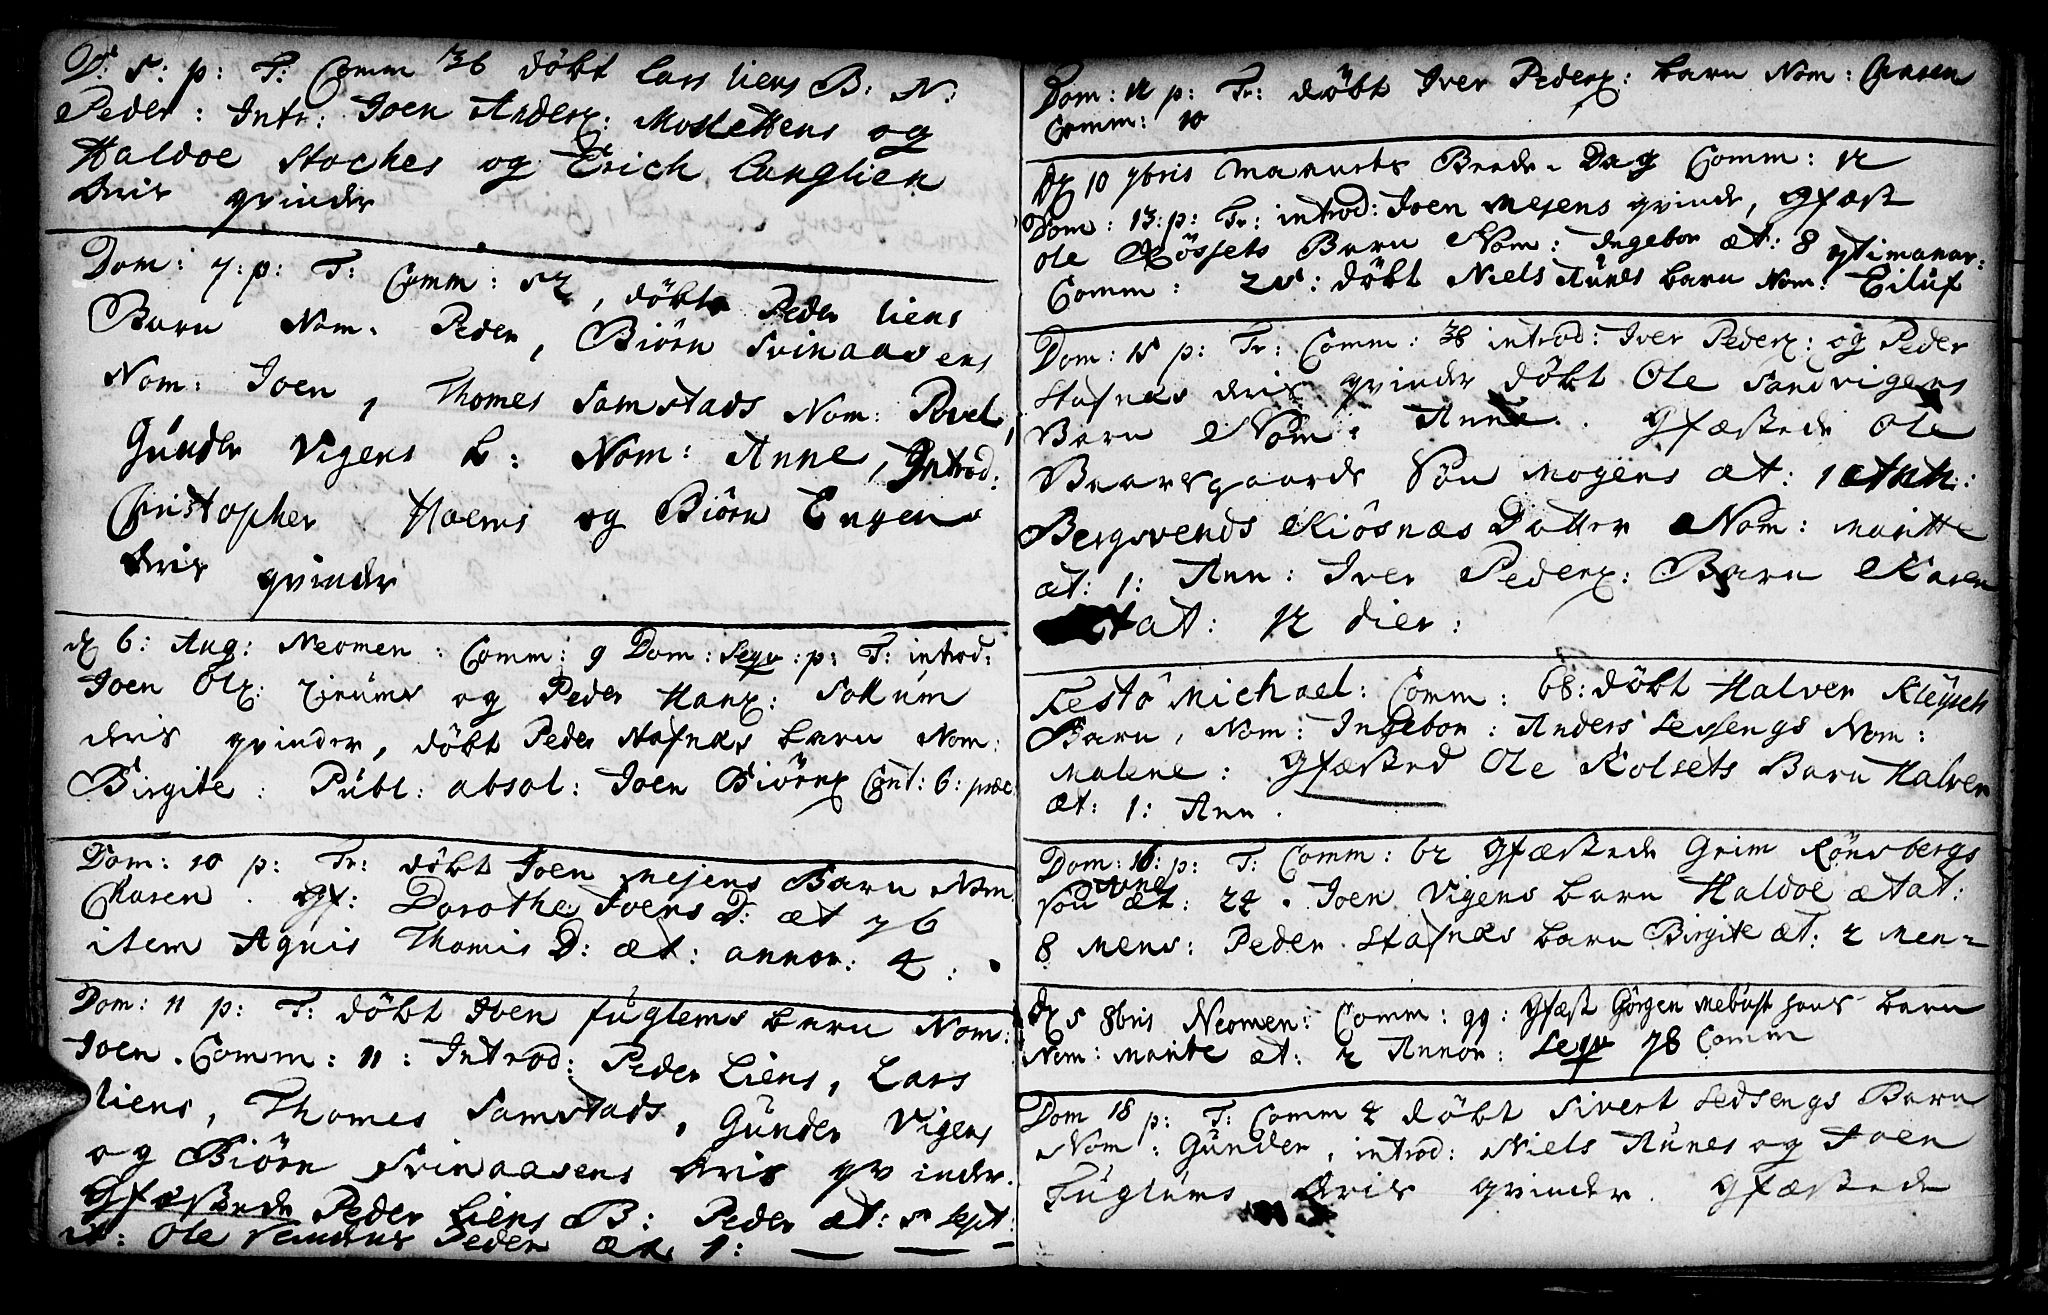 D: 5: p: T: Comm 36 döbt Lars Liens B: N:
Peder: Intr: Joen Anders: Mosletters og
Haldoe Stoches og Erich Langlien
deris qvinder
Dom: 7: p: T: Comm: 52, döbt Peder Liens
Barn Nom: Peder, Biörn Svinaasens
Nom: Joen, Thomes Samstads Nom: Povel,
Gúnder Vigens b: Nom: Anne, Introd:
Christopher Hoems og Biörn Engens
deris qvinder
d 6: Aug: Neomen: Comm: 9 Dom: Seqv: p: T: introd:
Joen Ol: og Peder Han: Solium
deris qvinder, döbt Peder Stafnes barn Nom:
Birgite: Públ: absol: Joen Biörn Cont: 6: præc
Dom: 10 p: Tr: döbt Joen Mejens Barn Nom
Charen. Gf: Dorothe Joens D: æt 76
item Agnis Thomis D: æt: annor: 4:
Dom: 11 p: T: döbt Joen fúglems barn Nom:
Joen. Comm: 11: Introd: Peder Liens, Lars
Liens, Thomes Samstads, Gúnder Vigens
og Biörn Svinaasens deris qvinder.
Gfæstede Peder Liens B: Peder æt: 5 Sept:
it: Ole Peder æt 1:
Dom: 12 p: Tr: döbt Iver Peder: barn Nom: Charen
Comm: 10
D 10 7bris Maanets Beede-Dag Comm: 12
Dom: 13: p: Tr: introd: Joen Mejens qvinde, Gfæst
Ole Rössets Barn Nom: Ingebor æt: 8 septimanar:
Comm: 25: döbt Niels Aúnes barn Nom: Eilúf
Dom: 15 p: Tr: Comm: 38 introd: Iver Peder: og Peder
Stafnes deris qvinder döbt Ole Sandvigens
Barn Nom: Anne. Gfæstede Ole
Baarsgaards Sön Mogens æt: 1 Ann:
Bergsvends Kiösnæs Datter Nom: Maritte
æt: 1: Ann: Iver Peder: Barn Karen
ætat: 12 dier:
Festo Michael: Comm: 68: döbt Halver Kleysets
Barn, Nom: Ingebor: Anders Lessengs Nom:
Malene: Gfæsted Ole Rolsets Barn Halver
æt: 1: Ann.
Dom: 16: p: T: Comm: 62 Gfæstede Grim Rönsbergs
Sön Arne æt: 24. Joen Vigens barn Haldoe ætat:
8 Mens: Peder Stafnes barn Birgite æt: 2 Men-
D 5 8bris Neomen: Comm: 99: Gfæst Görgen Mebúst hans barn
Nom: Marite æt: 2 Annor: Seqv 78 Comm
Dom 18 p: T: Comm 4 döbt Sivert Ledsengs Barn
Nom: Gúnder, introd: Niels Aúnes og Joen
Fúglúms deris qvinder. Gfæstede